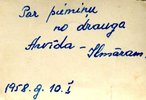 Par piemiņu
no drauga
Arvīda - Ilmāram.
1958. g. 10. I